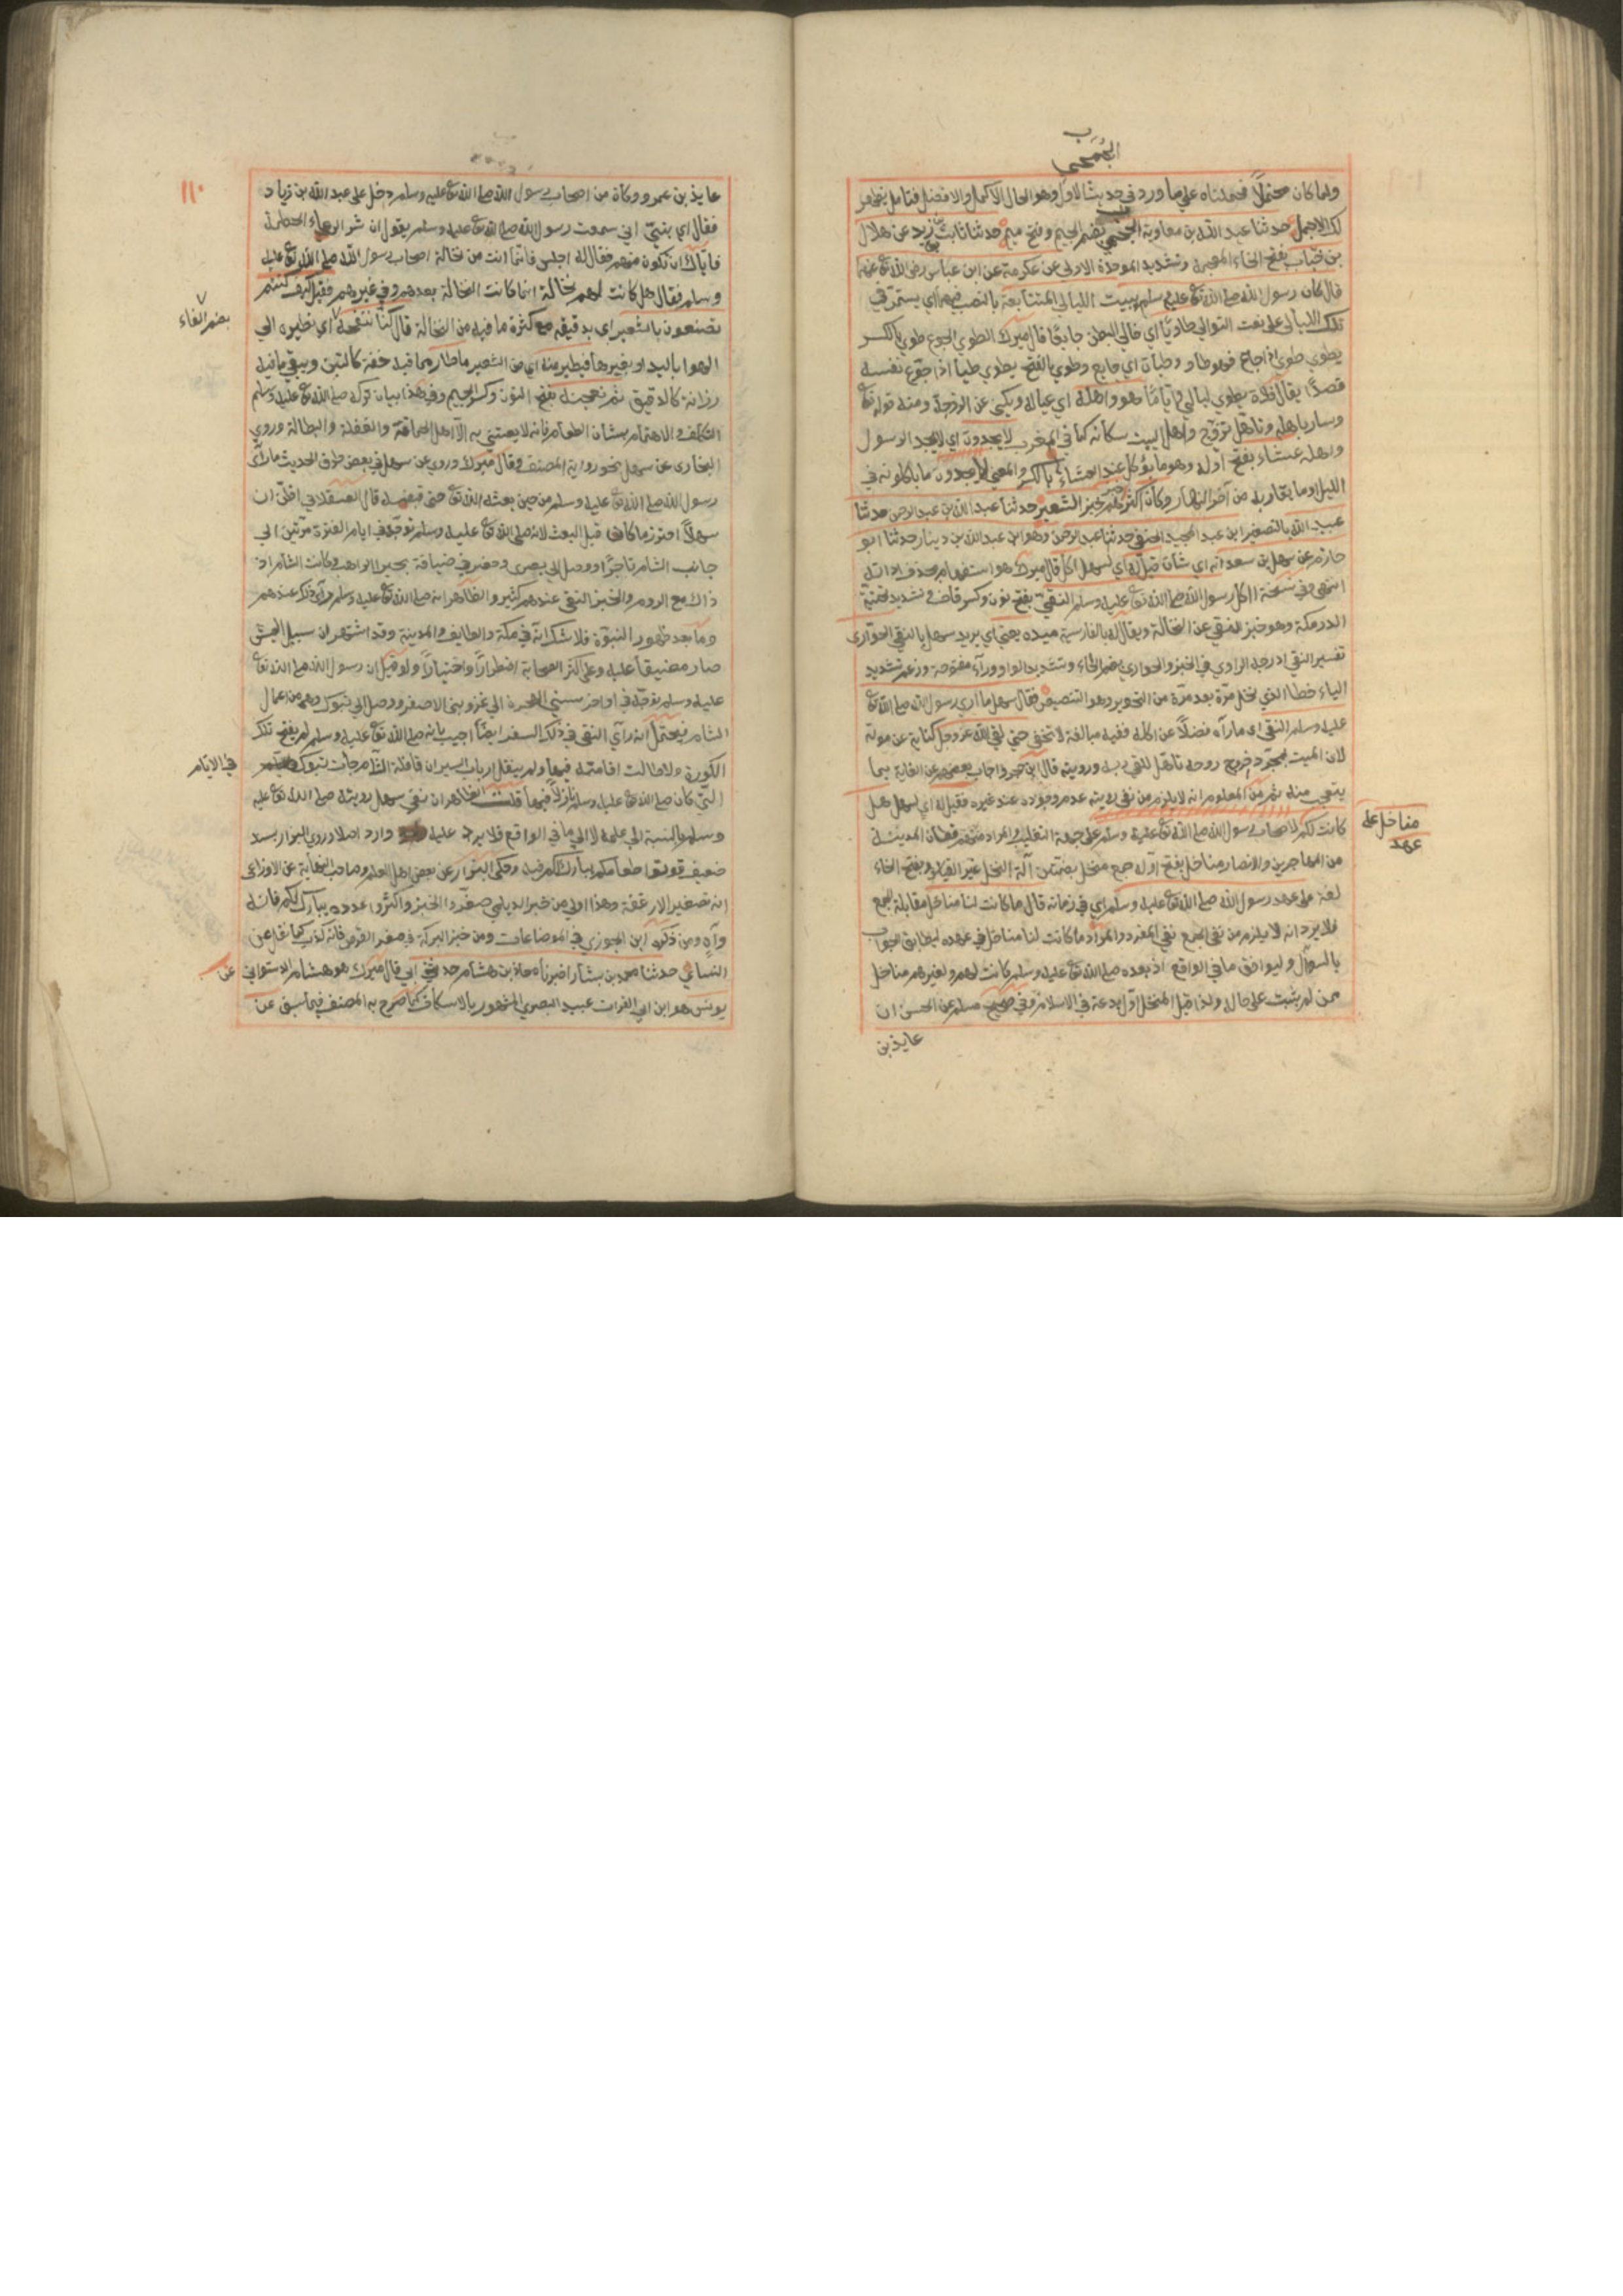 الجمحي
ولما كان محتملا فحملناه على ما ورد في حديث الاول وهو الحال الاكمل والافضل فتامل يظهر
لك الاجمل حدثنا عبد الله بن معاوية الجمحي بضم الجيم وفتح ميم حدثنا ثابت بن زيد عن هلال
بن خباب بفتح الخاء المعجمة وتشديد الموحدة الاولى عن عكرمة عن ابن عباس رضي الله تع عنه
قال كان رسول الله صلى الله تع عليه وسلم يبيت الليالي المتتابعة بالنصب فيهما اي يستمر في
تلك الليالي على نعت التوالي طاويا اي خالي البطن جايعا قال ميرك الطوي الجوع طوي بالكسر
يطوي طوى اذا جاع فهو طاو وطيان اي جايع وطوي بالفتح يطوي طيا اذا جوع نفسه
قصدا يقال فلان يطوي ليالي واياما هو واهله اي عياله ويكنى عن الزوجة ومنه قوله تع
وسار باهله وتاهل تزوج واهل البيت سكانه كما في المغرب لا يجدون اي لا يجد الرسول
واهله عشاء بفتح اوله وهو ما يؤكل عند العشاء بالكسر والمعنى لا يجدون ما ياكلونه في
الليل وما يقاربه من آخر النهار وكان اكثر خبزهم خبز الشعير حدثنا عبد الله بن عبد الرحمن حدثنا
عبيد الله بالتصغير ابن عبد المجيد الحنفي حدثنا عبد الرحمن وهو ابن عبد الله بن دينار حدثنا ابو
حازم عن سهل بن سعد انه اي شان قيل له اي لسهل اكل قال ميرك هو استفهام بحذف اداته
انتهى وفي نسخة أاكل رسول الله صلى الله تع عليه وسلم النقي بفتح نون وكسر قاف وتشديد تحتية
الدرمكة وهو خبز النقي عن النخالة ويقال له بالفارسية ميده يعني اي يريد سهل بالنقي الحواري
تفسير النقي ادرجه الراوي في الخبز والحواري بضم الحاء وتشديد الواو وراء مفتوحة وزعم تشديد
الياء خطا الذي نخل مرة بعد مرة من التحوير وهو التبييض فقال سهل ما راى رسول الله صلى الله تع
عليه وسلم النقي اى ما رآه فضلا عن اكله ففيه مبالغة لا تخفى حتى لقي الله عز وجل كناية عن موته
لان الميت بمجرد خروج روحه تاهل للقي ربه ورويته قال ابن حجر واجاب بعضهم عن الغاية بما
يتعجب منه ثم من المعلوم انه لا يلزم من نفي رويته عدم وجوده عند غيره فقيل له اي لسهل هل
كانت لكم لاصحاب رسول الله صلى الله تع عليه وسلم على جهة التغليب والمراد منهم قطان المدينة
من المهاجرين والانصار مناخل بفتح اوله جمع منخل بضمتين آلة النخل غير القياس وبفتح الخاء
لغة على عهد رسول الله صلى الله تع عليه وسلم اي في زمانه قال ما كانت لنا مناخل مقابلة الجمع
فلا يرد انه لا يلزم من نفي الجمع نفي المفرد والمراد ما كانت لنا مناخل في عهده ليطابق الجواب
بالسؤال وليوافق ما في الواقع اذ بعده صلى الله تع عليه وسلم كانت لهم ولغيرهم مناخل
ممن لم يثبت على حاله ولذا قيل المنخل اول بدعة في الاسلام وفي صحيح مسلم عن الحسن ان
مناخل على
عهد
عايذ بن
١١٠
عايذ بن عمرو وكان من اصحاب رسول الله صلى الله تع عليه وسلم دخل على عبد الله بن زياد
فقال اي بني اني سمعت رسول الله صلى الله تع عليه وسلم يقول ان شر الرعاء الحطمة
فاياك ان تكون منهم فقال له اجلس فانما انت من نخالة اصحاب رسول الله صلى الله تع عليه
وسلم فقال هل كانت لهم نخالة انما كانت النخالة بعدهم وفي غيرهم فقيل كيف كنتم
تصنعون بالشعير اي بدقيقه مع كثرة ما فيه من النخالة قال كنا ننفخه اي نطيره الى
بضم الفاء
الهوا باليد او بغيرها فيطير منه اي من الشعير ما طار مما فيه خفة كالتبن ويبقى ما فيه
رزانة كالدقيق ثم نعجنه بفتح النون وكسر الجيم وفي هذا بيان تركه صلى الله تع عليه وسلم
التكلف والاهتمام بشان الطعام فانه لا يعتني به الا اهل الحماقة والغفلة والبطالة وروي
البخارى عن سهل نحو رواية المصنف وقال ميرك وروي عن سهل في بعض طرق الحديث ما راى
رسول الله صلى الله تع عليه وسلم من حين بعثه الله تع حتى قبضه قال العسقلاني اظن ان
سهلا احترز عما كان قبل البعث لانه صلى الله تع عليه وسلم توجه في ايام الفترة مرتين الى
جانب الشام تاجرا ووصل الى بصرى وحضر في ضيافة بحيرا الراهب وكانت الشام اذ
ذاك مع الروم والخبز النقي عندهم كثير والظاهر انه صلى الله تع عليه وسلم رآى ذلك عندهم
وما بعد ظهور النبوة فلا شك انه في مكة والطايف والمدينة وقد اشتهر ان سبيل العيش
صار مضيقا عليه وعلى اكثر الصحابة اضطرارا واختيارا ولو قيل ان رسول الله صلى الله تع
عليه وسلم توجه في اواخر سني الهجرة الى غزو بني الاصفر ووصل الى تبوك وهي من اعمال
الشام فيحتمل انه رآى النقي في ذلك السفر ايضا اجيب بانه صلى الله تع عليه وسلم لم يفتح تلك
الكورة ولا طالت اقامته فيها ولم ينقل ارباب السير ان قافلة الشام جائت تبوك
في الايام
التي كان صلى الله تع عليه وسلم نازلا فيها قلت الظاهر ان نفي سهل رويته صلى الله تع عليه
وسلم بالنسبة الى علمه لا الى ما في الواقع فلا يرد عليه وارد اصلا وروي البزار بسند
ضعيف قوتوا طعامكم يبارك لكم فيه وحكى البزار عن بعض اهل العلم وصاحب النهاية عن الاوزاعي
انه تصغير الارغفة وهذا اولى من خبر الديلمي صغروا الخبز واكثروا عدده يبارك لكم فانه
واه ومن ذكره ابن الجوزي في الموضاعات ومن خبز البركة في صغر القرص فانه كذب كما نقل عن
النسائي حدثنا محمد بن بشار اخبرنا معاذ بن هشام حدثني ابي قال ميرك هو هشام الدستوائي
عن
يونس هو ابن ابي الفرات عبيد البصري المشهور بالاسكاف كما صرح به المصنف فيما سبق عن